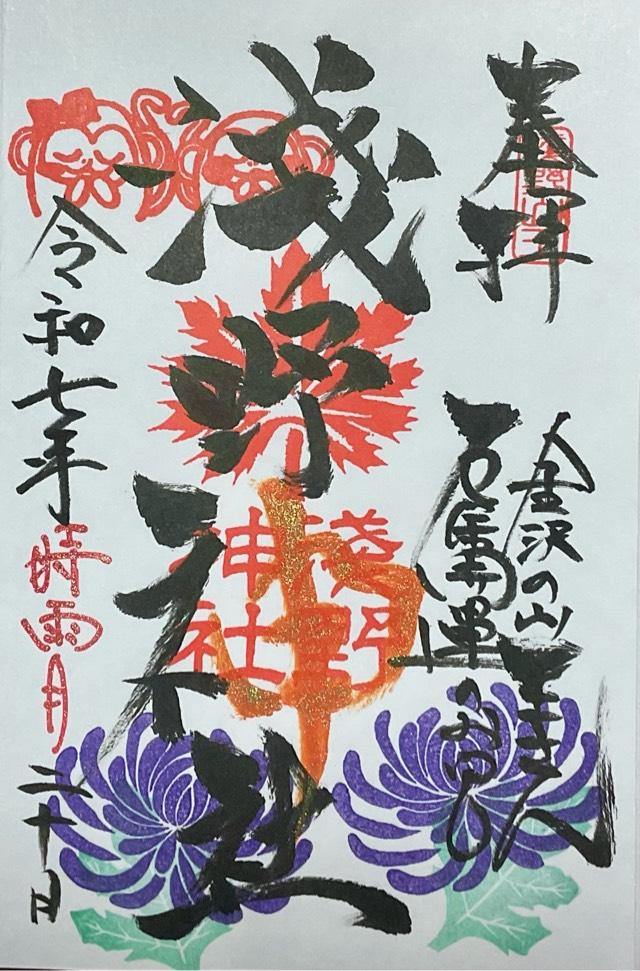 奉拝
金沢の山王さん
浅野神社
淺野
神社
令和七年時雨月二十日